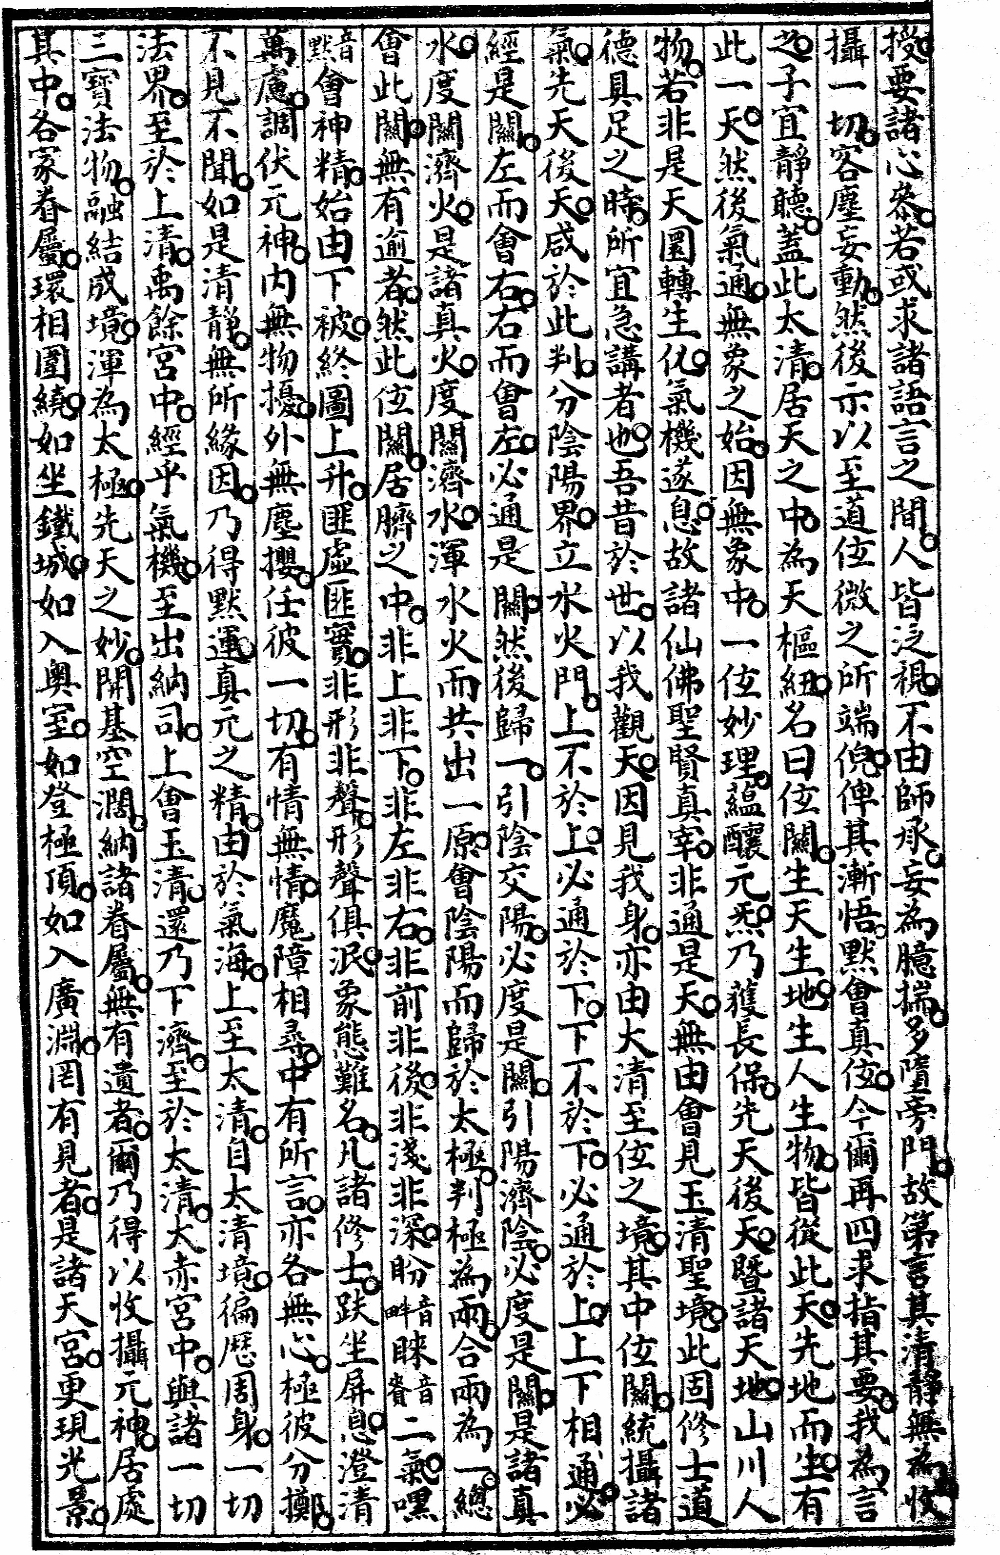 授要諸心咎若或求諸語言之間人皆泛視不由師承妄為臆揣多墮旁門故第言其清靜無為收
攝一切客塵妄動然後示以至道伭微之所端倪俾其漸悟默會真伭今爾再四求指其要我為言
之子宜靜聽蓋此太清居天之中為天樞紐名曰伭關生天生地生人生物皆從此天先地而生有
此一天然後氣通無象之始因無象中一伭妙理蘊釀元炁乃獲長保先天後天暨諸天地山川人
物若非是天圜轉生化氣機遂息故諸仙佛聖賢真宰非通是天無由會見玉清聖境此固修士道
德具足之時所宜急講者也吾昔於世以我觀天因見我身亦由大清至伭之境其中伭關統攝諸
氣先天後天咸於此判分陰陽界立水火門上不於上必通於下下不於下必通於上上下相通必
經是關左而會右右而會左必通是關然後歸一引陰交陽必度是關引陽濟陰必度是關是諸真
水度關濟火是諸真火度關濟水渾水火而共出一原會陰陽而歸於太極判極為兩合兩為一總
會此關無有逾者然此伭關居臍之中非上非下非左非右非前非後非淺非深盼音畔睞音賚二氣嘿
音默會神精始由下被終圖上升匪虛匪實非形非聲形聲俱泯象態難名凡諸修士趺坐屏息澄清
萬慮調伏元神內無物擾外無塵攖任彼一切有情無情魔障相尋中有所言亦各無心極彼分擲
不見不聞如是清靜無所緣因乃得默運真元之精由於氣海上至太清自太清境徧歷周身一切
法界至於上清禹餘宮中經乎氣機至出納司上會玉清還乃下濟至於太清太赤宮中與諸一切
三寶法物融結成境渾為太極先天之妙開基空濶納諸眷屬無有遺者爾乃得以收攝元神居處
其中各家眷屬環相圍繞如坐鐵城如入奧室如登極頂如入廣淵罔有見者是諸天宮更現光景